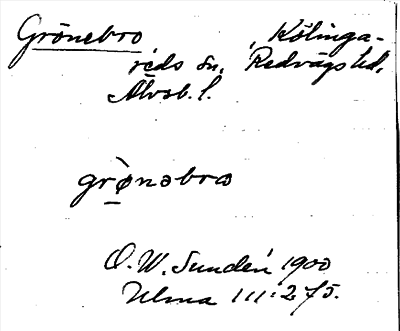 Grönebro, Kölinga-
reds sn, Redvägs hd,
Älvsb. l.
grònəbro
O. W. Sundén 1900
Ulma 111:275.